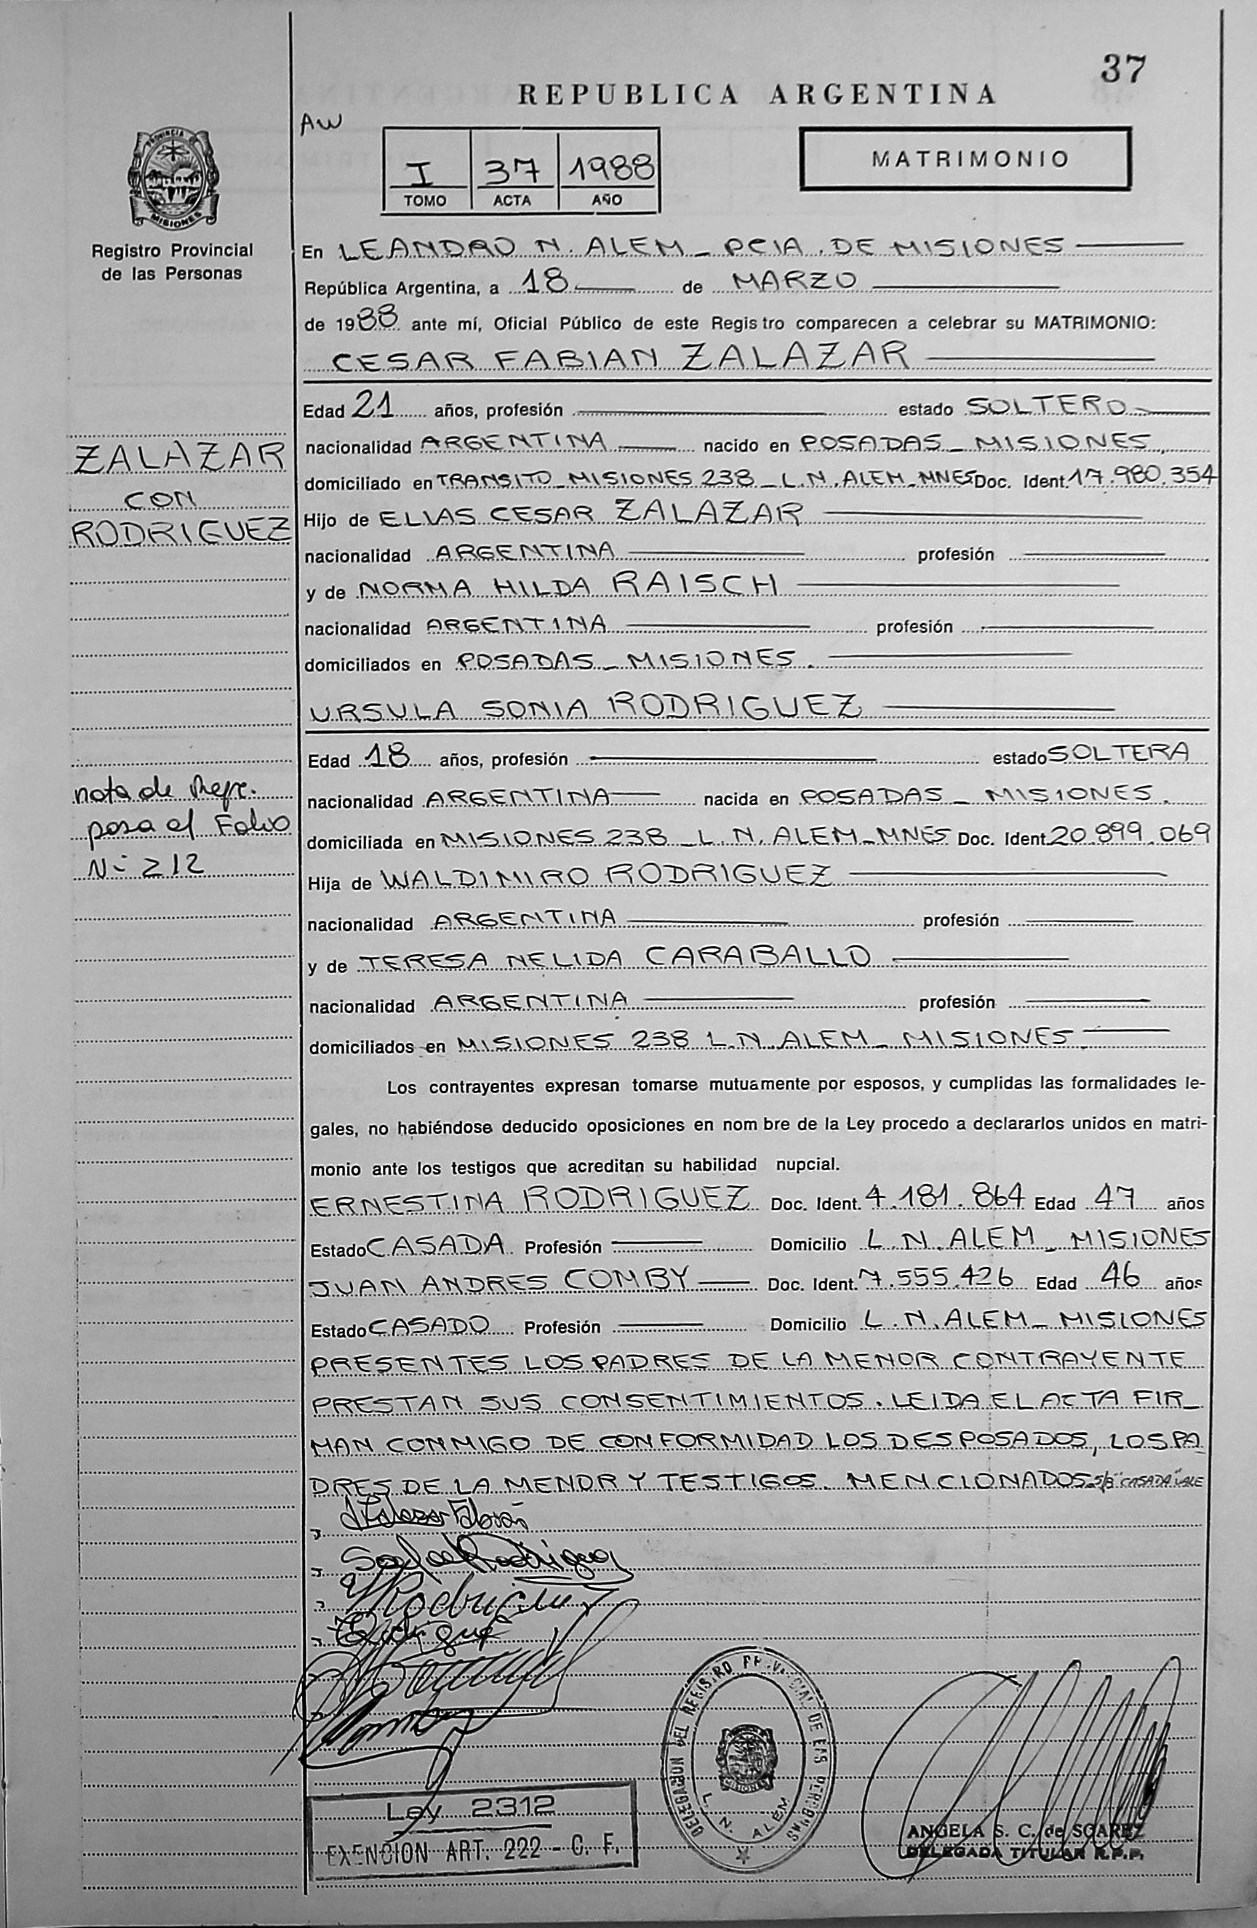 37
REPUBLICA ARGENTINA
AW
I 37 1988
TOMO ACTA AÑO
MATRIMONIO
PROVINCIA DE MISIONES
Registro Provincial
de las Personas
En LEANDRO N. ALEM _ PCIA. DE MISIONES
República Argentina, a 18 de MARZO
de 1988 ante mí, Oficial Público de este Registro comparecen a celebrar su MATRIMONIO:
CESAR FABIAN ZALAZAR
Edad 21 años, profesión estado SOLTERO
nacionalidad ARGENTINA nacido en POSADAS _ MISIONES
domiciliado en TRANSITO _ MISIONES 238 _ L.N. ALEM _ MNES Doc. Ident. 17.980.354
Hijo de ELIAS CESAR ZALAZAR
nacionalidad ARGENTINA profesión
y de NORMA HILDA RAISCH
nacionalidad ARGENTINA profesión
domiciliados en POSADAS _ MISIONES.
URSULA SONIA RODRIGUEZ
Edad 18 años, profesión estado SOLTERA
nacionalidad ARGENTINA nacida en POSADAS _ MISIONES.
domiciliada en MISIONES 238 _ L.N. ALEM _ MNES Doc. Ident. 20.899.069
Hija de WALDIMIRO RODRIGUEZ
nacionalidad ARGENTINA profesión
y de TERESA NELIDA CARABALLO
nacionalidad ARGENTINA profesión
domiciliados en MISIONES 238 L.N. ALEM _ MISIONES
Los contrayentes expresan tomarse mutuamente por esposos, y cumplidas las formalidades le-
gales, no habiéndose deducido oposiciones en nom bre de la Ley procedo a declararlos unidos en matri-
monio ante los testigos que acreditan su habilidad nupcial.
ERNESTINA RODRIGUEZ Doc. Ident. 4.181.864 Edad 47 años
Estado CASADA Profesión Domicilio L.N. ALEM _ MISIONES
JUAN ANDRES COMBY Doc. Ident. 7.555.426 Edad 46 años
Estado CASADO Profesión Domicilio L.N. ALEM _ MISIONES
PRESENTES LOS PADRES DE LA MENOR CONTRAYENTE
PRESTAN SUS CONSENTIMIENTOS. LEIDA EL ACTA FIR_
MAN CONMIGO DE CONFORMIDAD LOS DESPOSADOS, LOS PA
DRES DE LA MENOR Y TESTIGOS MENCIONADOS. S/B "CASADA" VALE
ZALAZAR
CON
RODRIGUEZ
nota de Refe.
pasa al Folio
Nº 212
Zalazar Fabián
Rodriguez
Rodriguez
DELEGACION DEL REGISTRO PROVINCIAL DE LAS PERSONAS
L. N. ALEM
MISIONES
Ley 2312
EXENCION ART. 222 - C. F.
ANGELA S. C. de SOAREZ
DELEGADA TITULAR R.P.P.